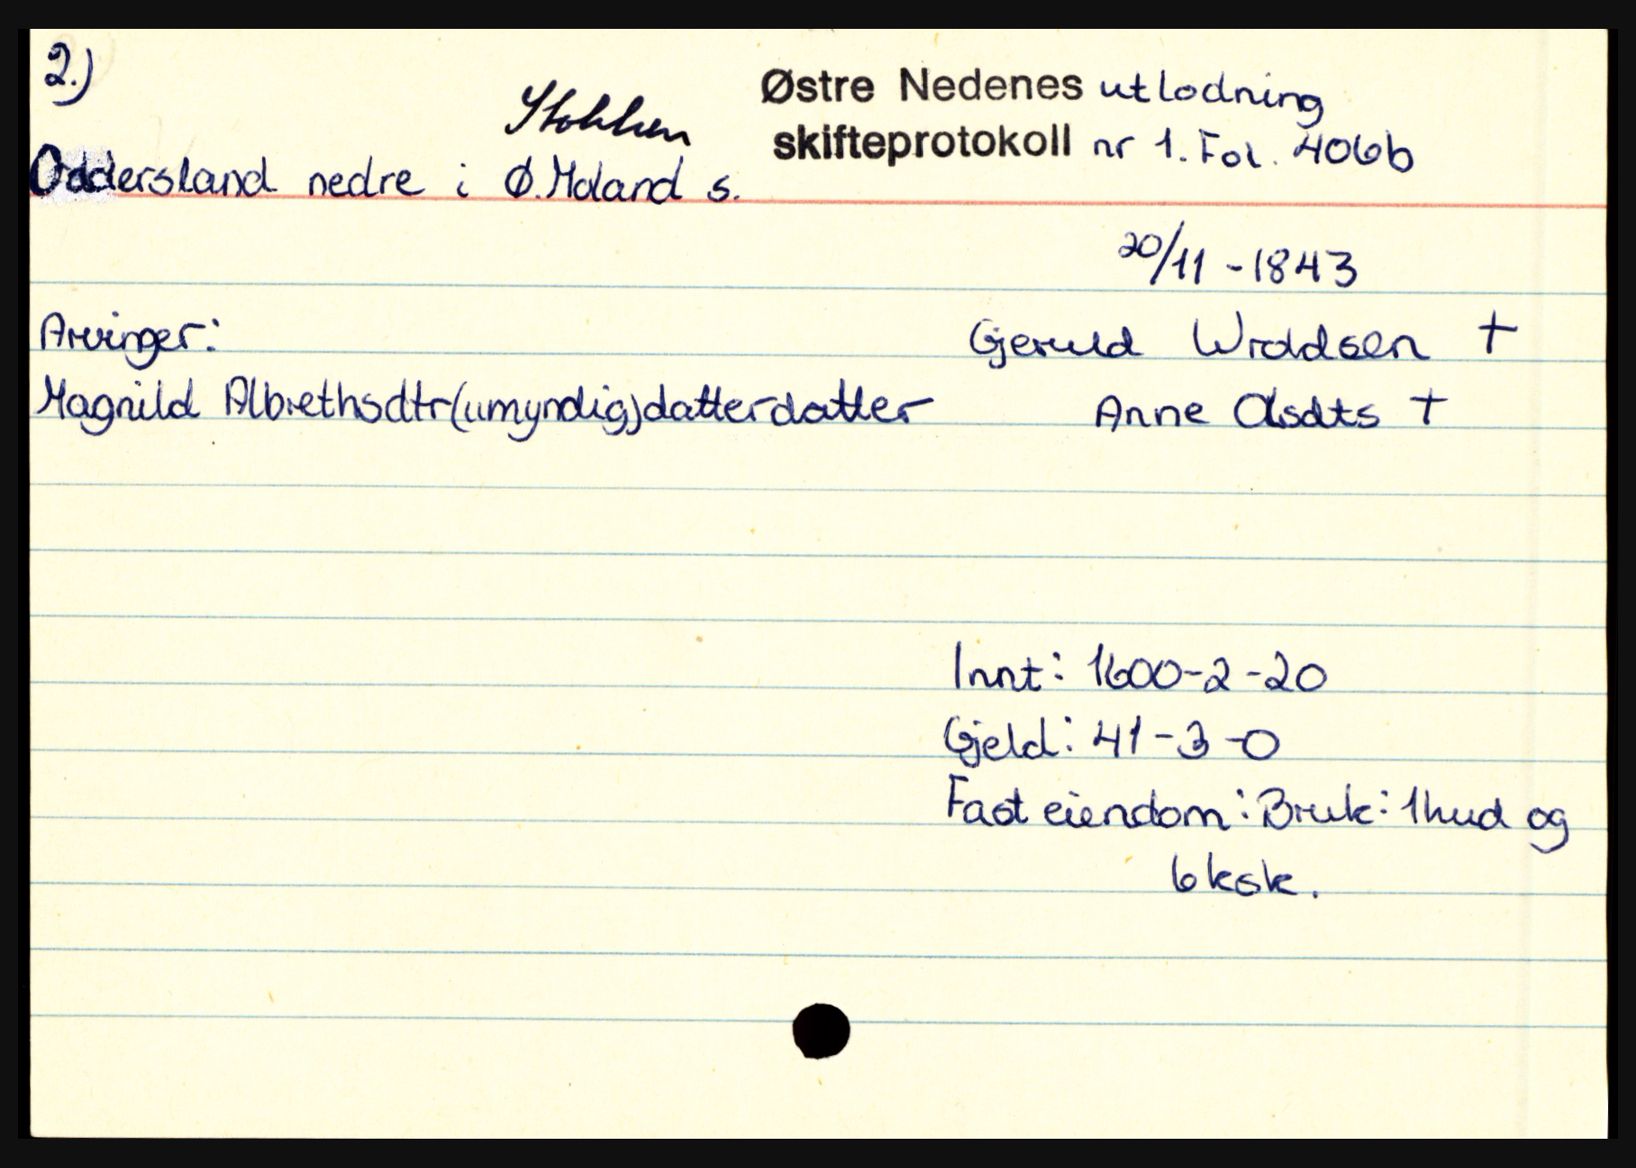 2.)
Stokken
Østre Nedenes utlodning
skifteprotokoll nr 1. Fol. 406b
Oddersland nedre i Ø. Moland s.
20/11 - 1843
Arvinger:
Gjeruld Wroldsen +
Magnild Albrethsdtr (umyndig) datterdatter
Anne Olsdts +
Innt: 1600-2-20
Gjeld: 41-3-0
Fast eiendom: Bruk: 1 hud og
6 ksk.